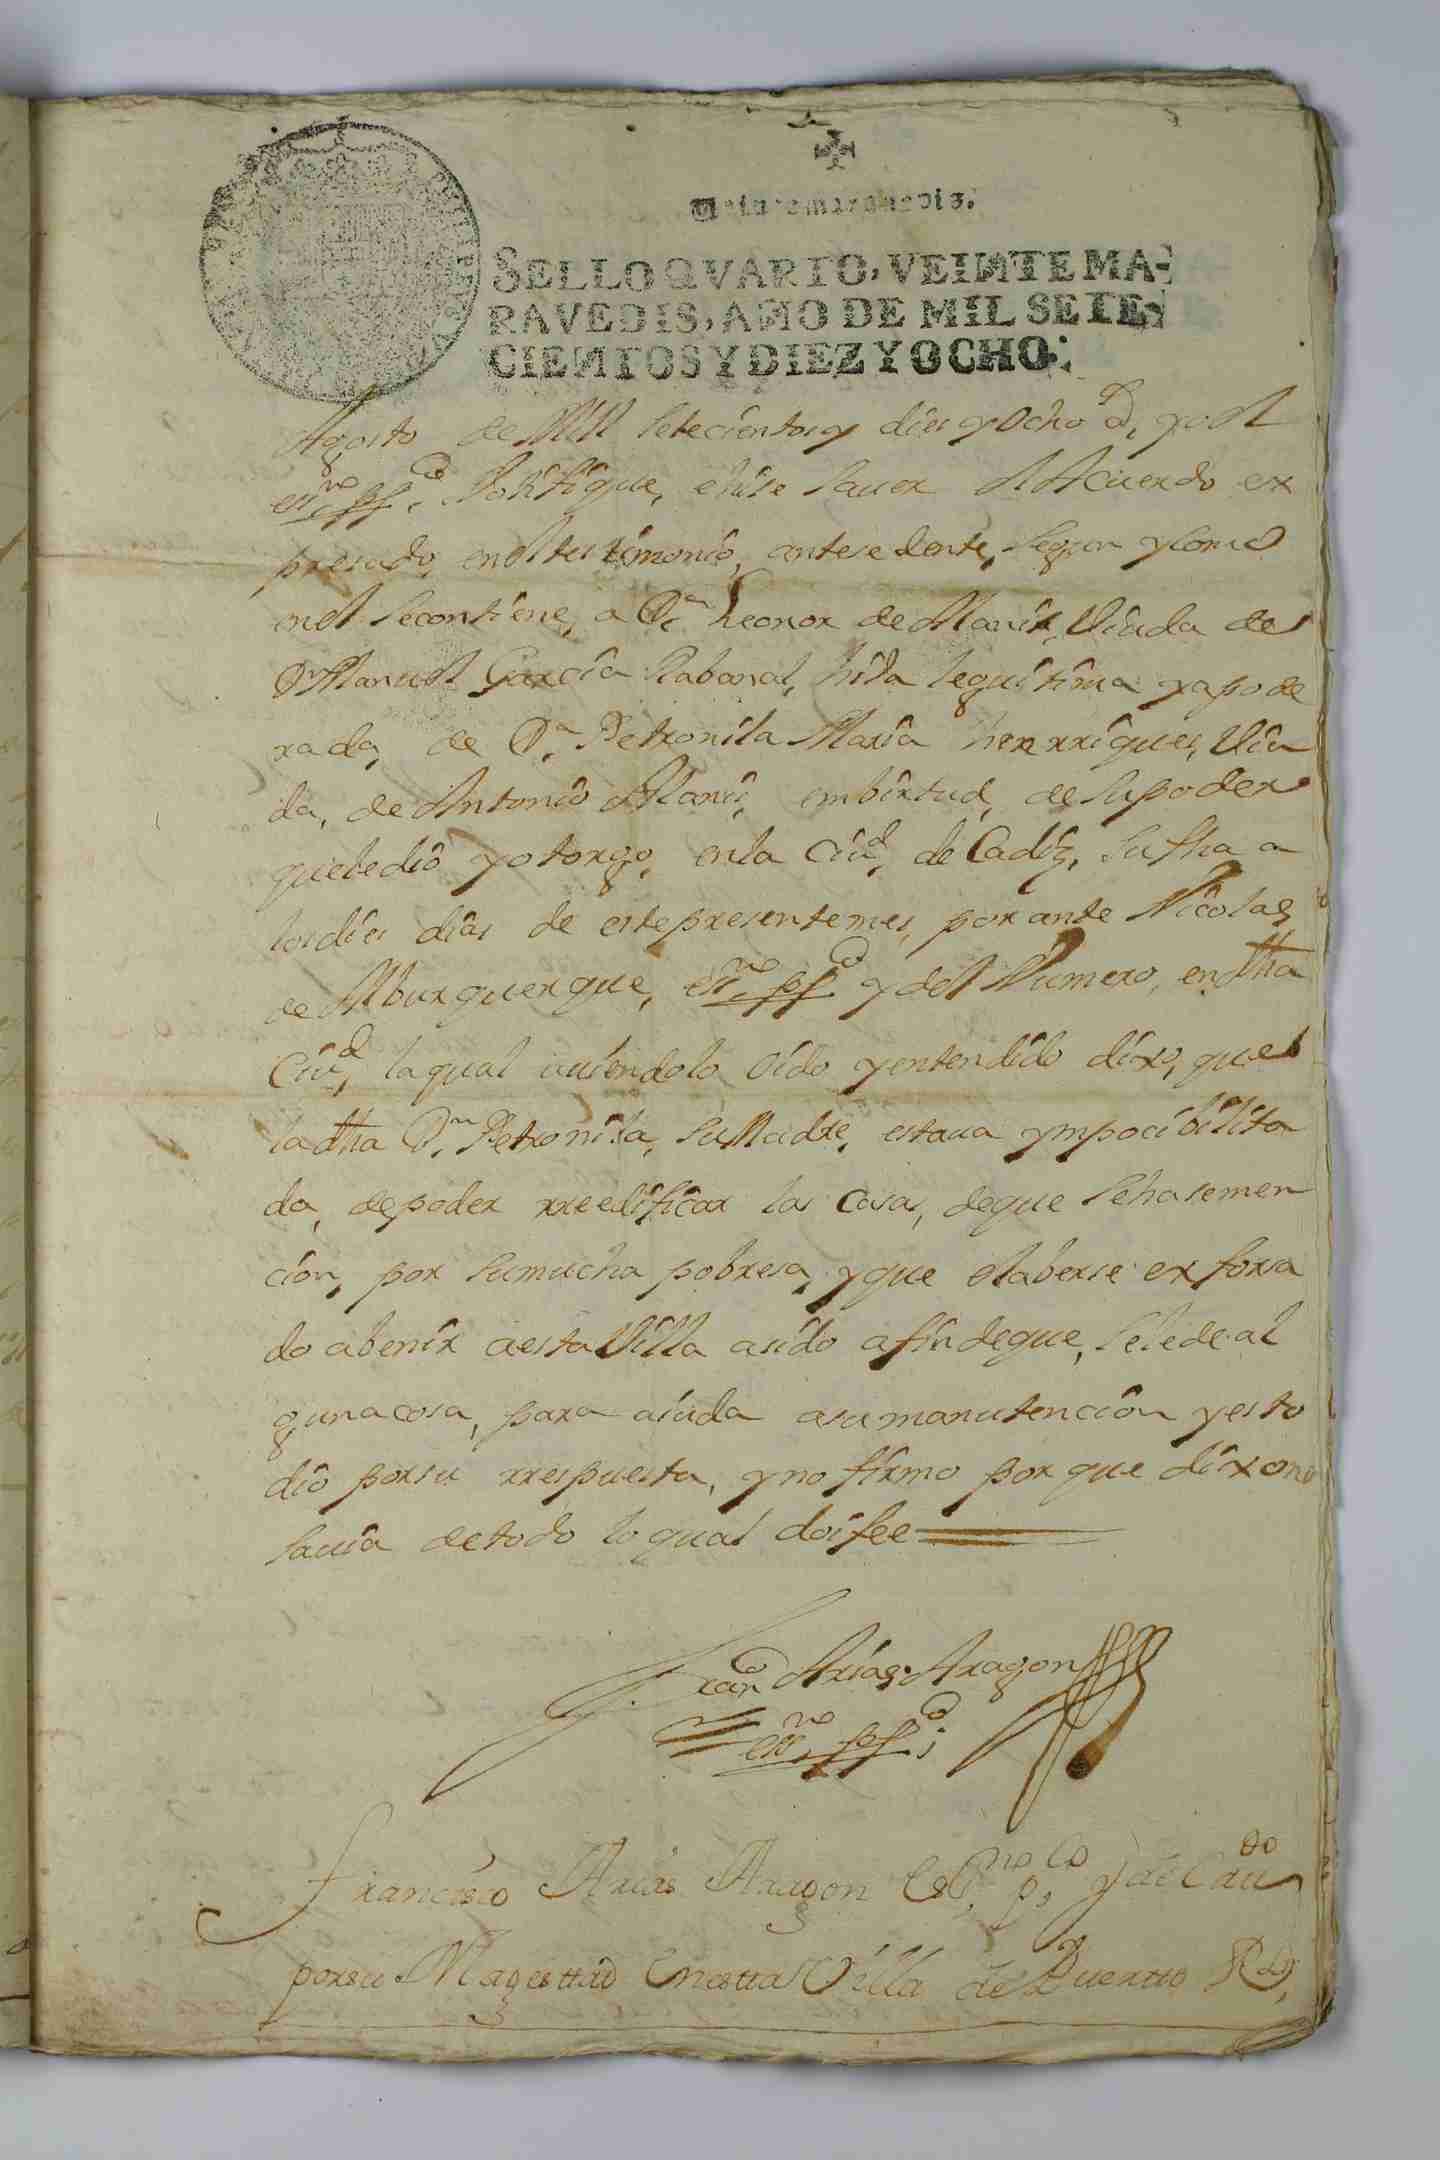 Veinte maravedis.
SELLO QVARTO, VEINTE MA-
RAVEDIS, AÑO DE MIL SETE-
CIENTOS Y DIEZ Y OCHO.
Agosto de Mill Setecientos y dies y Ocho a.s yo el
essno. ppco. Notifique, e hise sauer el Acuerdo ex
presado, en el testimonio, antesedente, segun y como
en el se contiene, a Da. Leonor de Alanis, Viuda de
Dn Manuel Garcia Rabanal, hixa leguitima y apode
rada, de Da. Petronila Maria henrriques, Viu
da, de Antonio Alanis, embirtud, de su poder
que le dio y otorgo, en la Ciud. de Cadiz, su fha a
los dies dias de este presente mes, por ante Nicolas
de Alburquerque, essno. ppco. y del Numero, en dha
Ciud, la qual uiendolo oido y entendido dixo, que
la dha Da. Petronila, su Madre, estaua ymposibilita
da, de poder rreedificar las Casas, de que se hase men
cion, por su mucha pobresa, y que el aberse exforsa
do a benir a esta Villa a sido a fin de que, se le de al
guna cosa, para aiuda a su manutencion y esto
dio por su rrespuesta, y no firmo por que dixo no
sauia de todo lo qual doi fee
Franco. Arias Aragon
essno. ppco.
Francisco Arias Aragon Essno. pco. y de Cauildo
por su Magesttad En estta Villa de Puertto Rl.